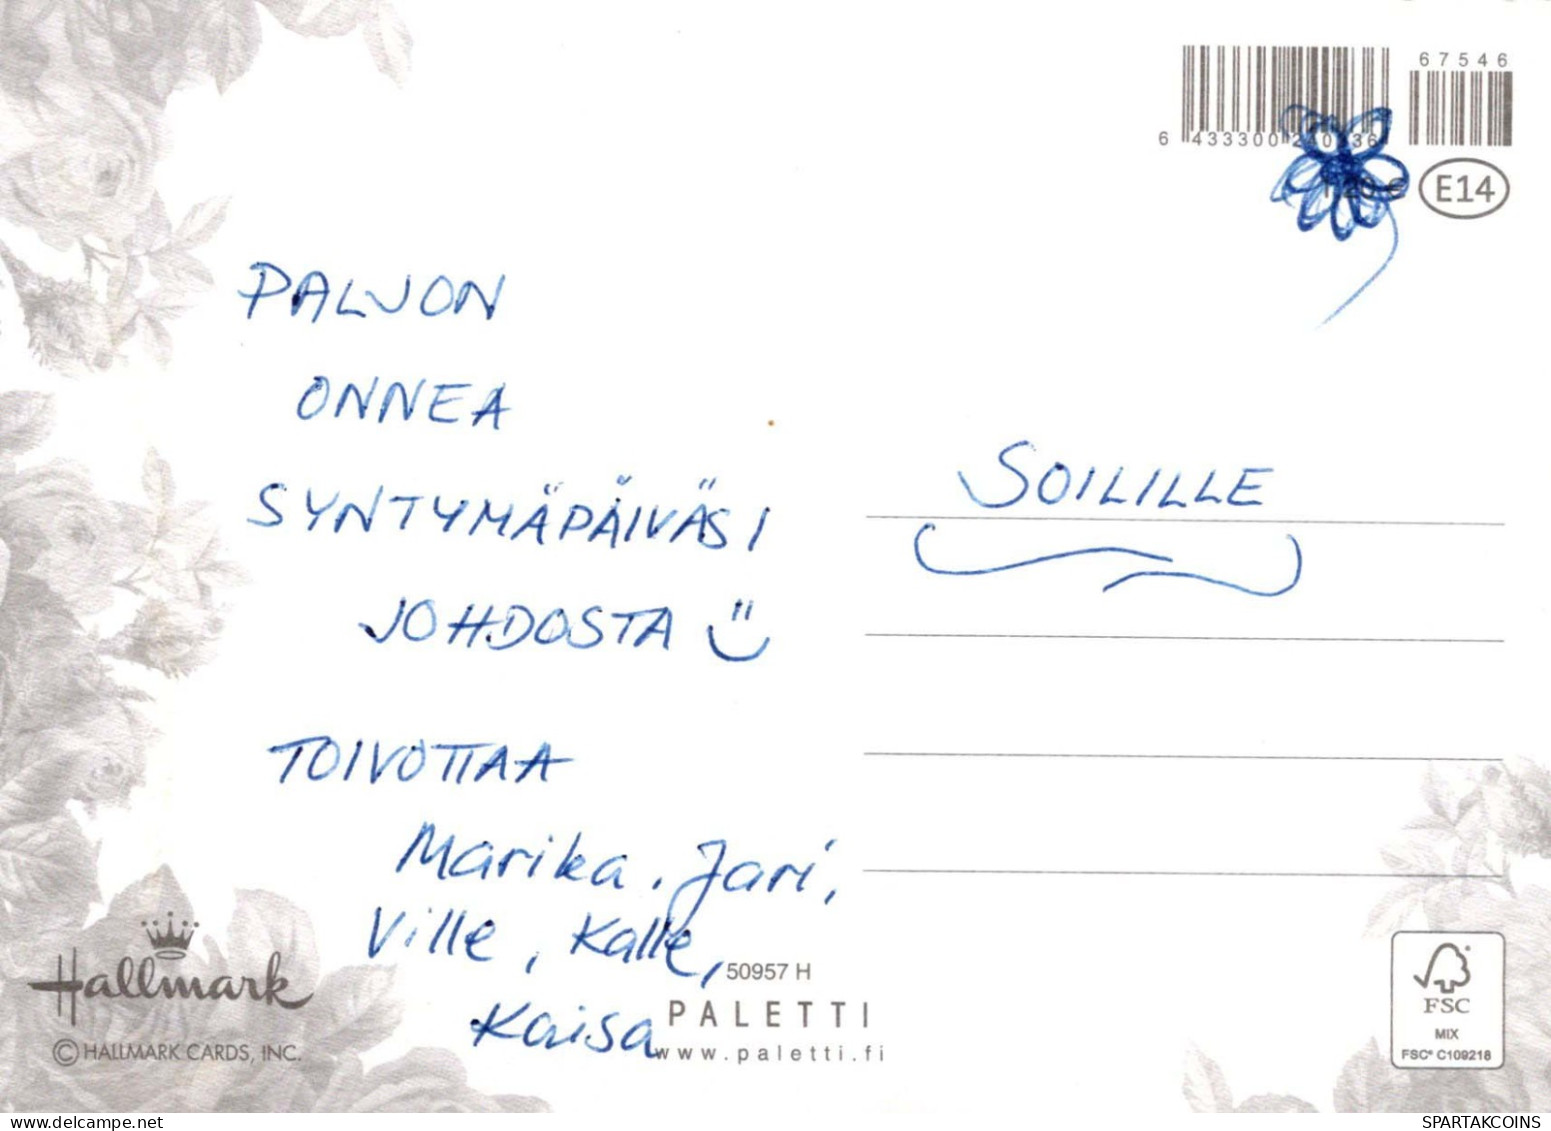 67546
6 433300 240 36
1.20 € E14
PALJON
ONNEA
SYNTYMÄPÄIVÄSI
JOHDOSTA
TOIVOTTAA
Marika, Jari,
Ville, Kalle,
Kaisa
SOILILLE
Hallmark
© HALLMARK CARDS, INC.
50957 H
PALETTI
www.paletti.fi
FSC
MIX
FSC® C109218
www.delcampe.net
SPARTAKCOINS